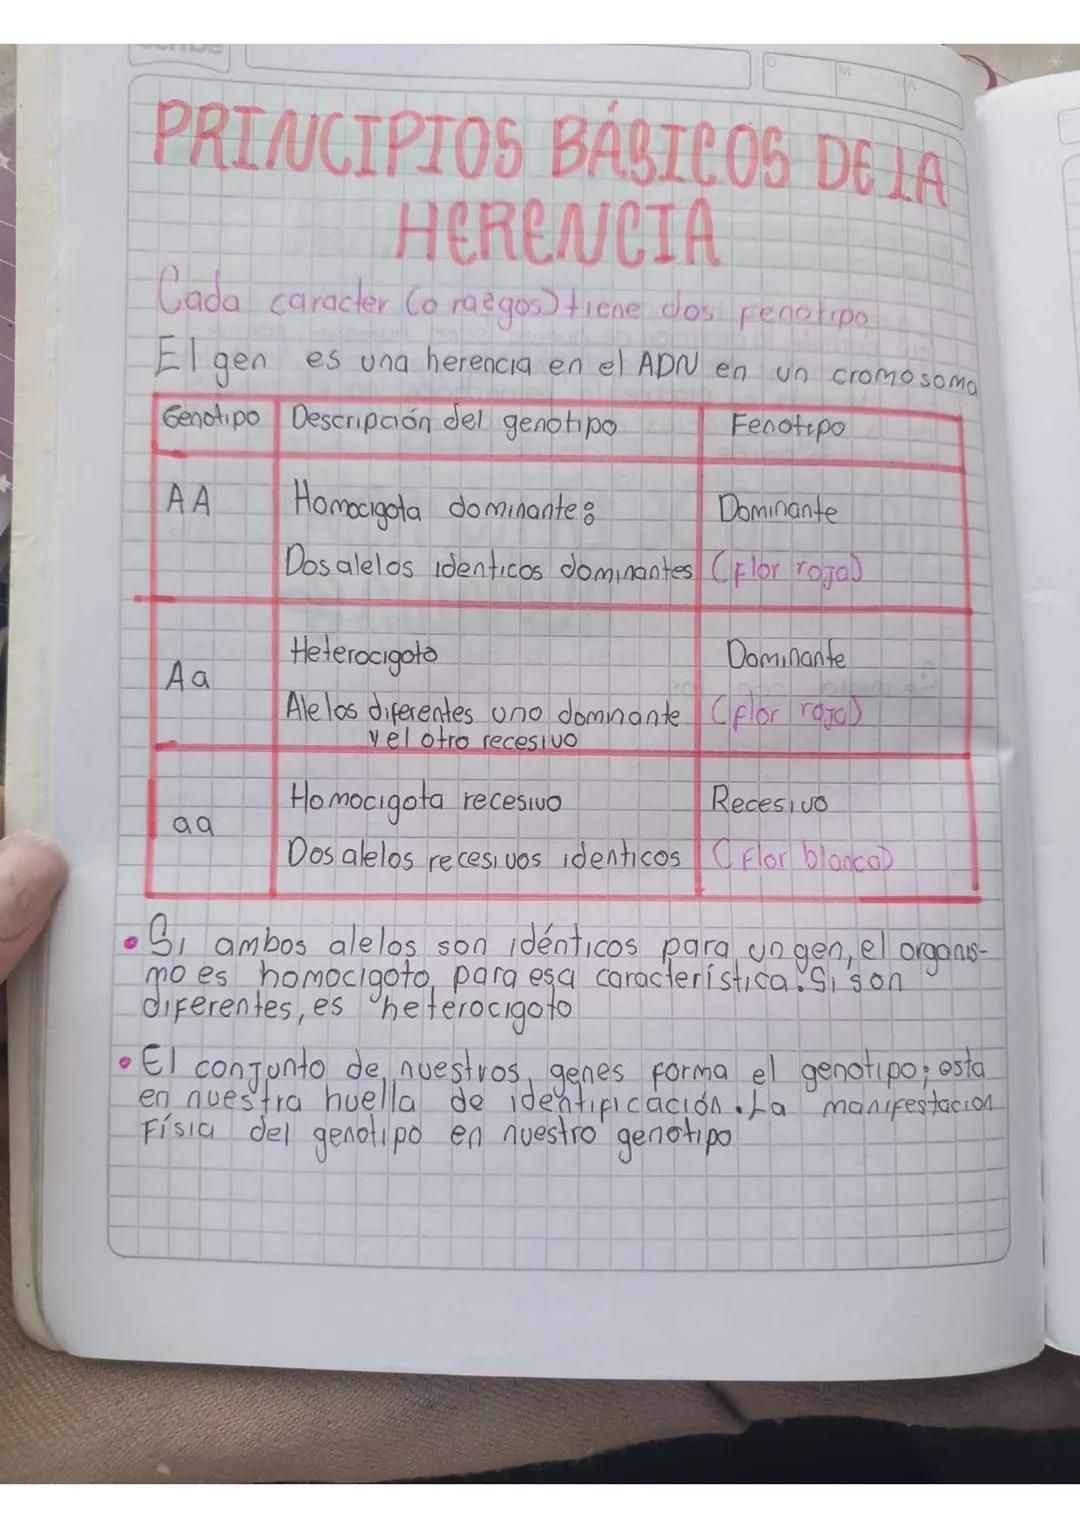 PRINCIPIOS BÁSICOS DE LA
HERENCIA
Cada caracter (o raegos) tiene dos fenotipo
El gen es una herencia en el ADN en un cromosoma
Genotipo Descripción del genotipo Fenotipo
AA Homocigota dominante: Dominante
Dos alelos identicos dominantes (Flor roja)
Aa Heterocigoto Dominante
Alelos diferentes uno dominante (flor roja)
y el otro recesivo
aa Homocigota recesivo Recesivo
Dos alelos recesivos identicos (Flor blanca)
• Si ambos alelos son idénticos para un gen, el organis-
mo es homocigoto, para esa característica. Si son
diferentes, es heterocigoto
• El conjunto de nuestros genes forma el genotipo; esta
en nuestra huella de identificación. La manifestacion
Físia del genotipo en nuestro genotipo